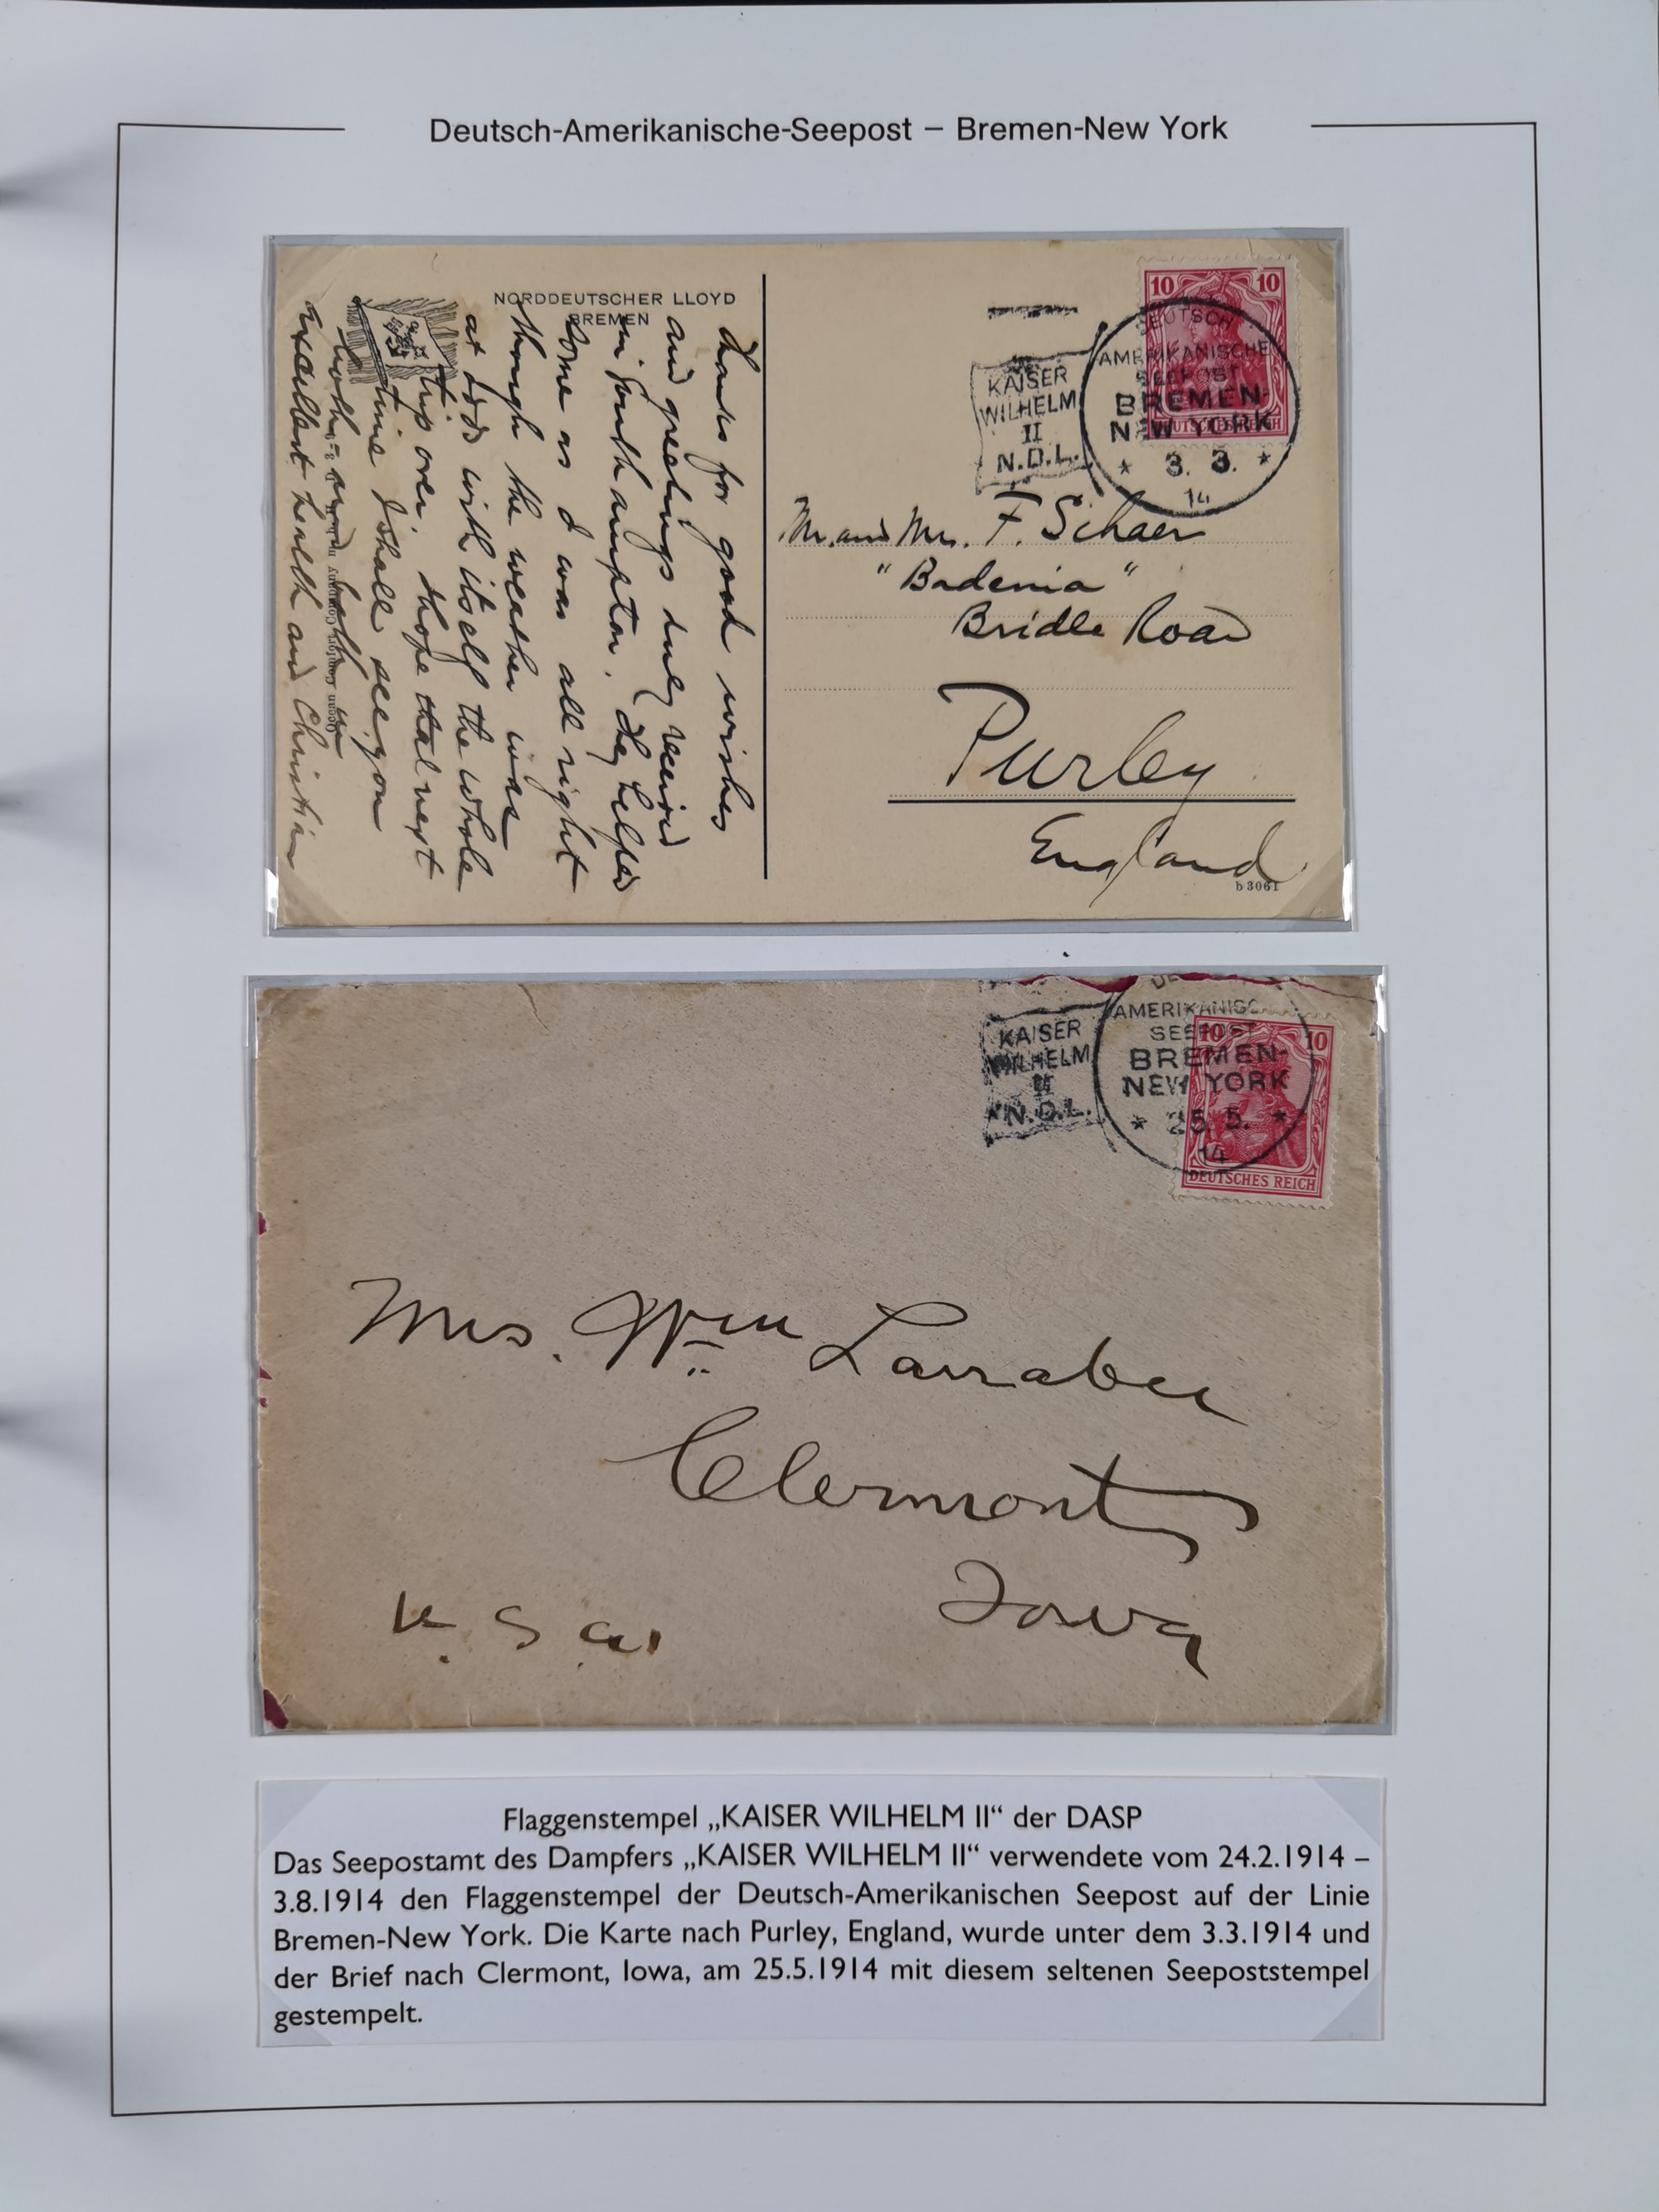 Deutsch-Amerikanische-Seepost – Bremen-New York
NORDDEUTSCHER LLOYD
BREMEN
Thanks for good wishes
and greetings duly received
in Southampton. They helped
some as I was all right
though the weather was
at odds with itself the whole
trip over. I hope that next
time I shall see you
both in
excellent health and Christian
10 10
DEUTSCHES REICH
DEUTSCH
AMERIKANISCHE
SEEPOST
BREMEN-
NEW YORK
* 3. 3. *
14
KAISER
WILHELM
II
N.D.L.
Mr. and Mrs. F. Schaer
"Badenia"
Bridle Road
Purley
England
b 3061
KAISER
WILHELM
II
N.D.L.
AMERIKANISC
SEEPOST
BREMEN-
NEW YORK
* 25. 5. *
14
10 10
DEUTSCHES REICH
Mrs. Wm Larrabee
Clermont
Iowa
U. S. A.
Flaggenstempel „KAISER WILHELM II“ der DASP
Das Seepostamt des Dampfers „KAISER WILHELM II“ verwendete vom 24.2.1914 –
3.8.1914 den Flaggenstempel der Deutsch-Amerikanischen Seepost auf der Linie
Bremen-New York. Die Karte nach Purley, England, wurde unter dem 3.3.1914 und
der Brief nach Clermont, Iowa, am 25.5.1914 mit diesem seltenen Seepoststempel
gestempelt.